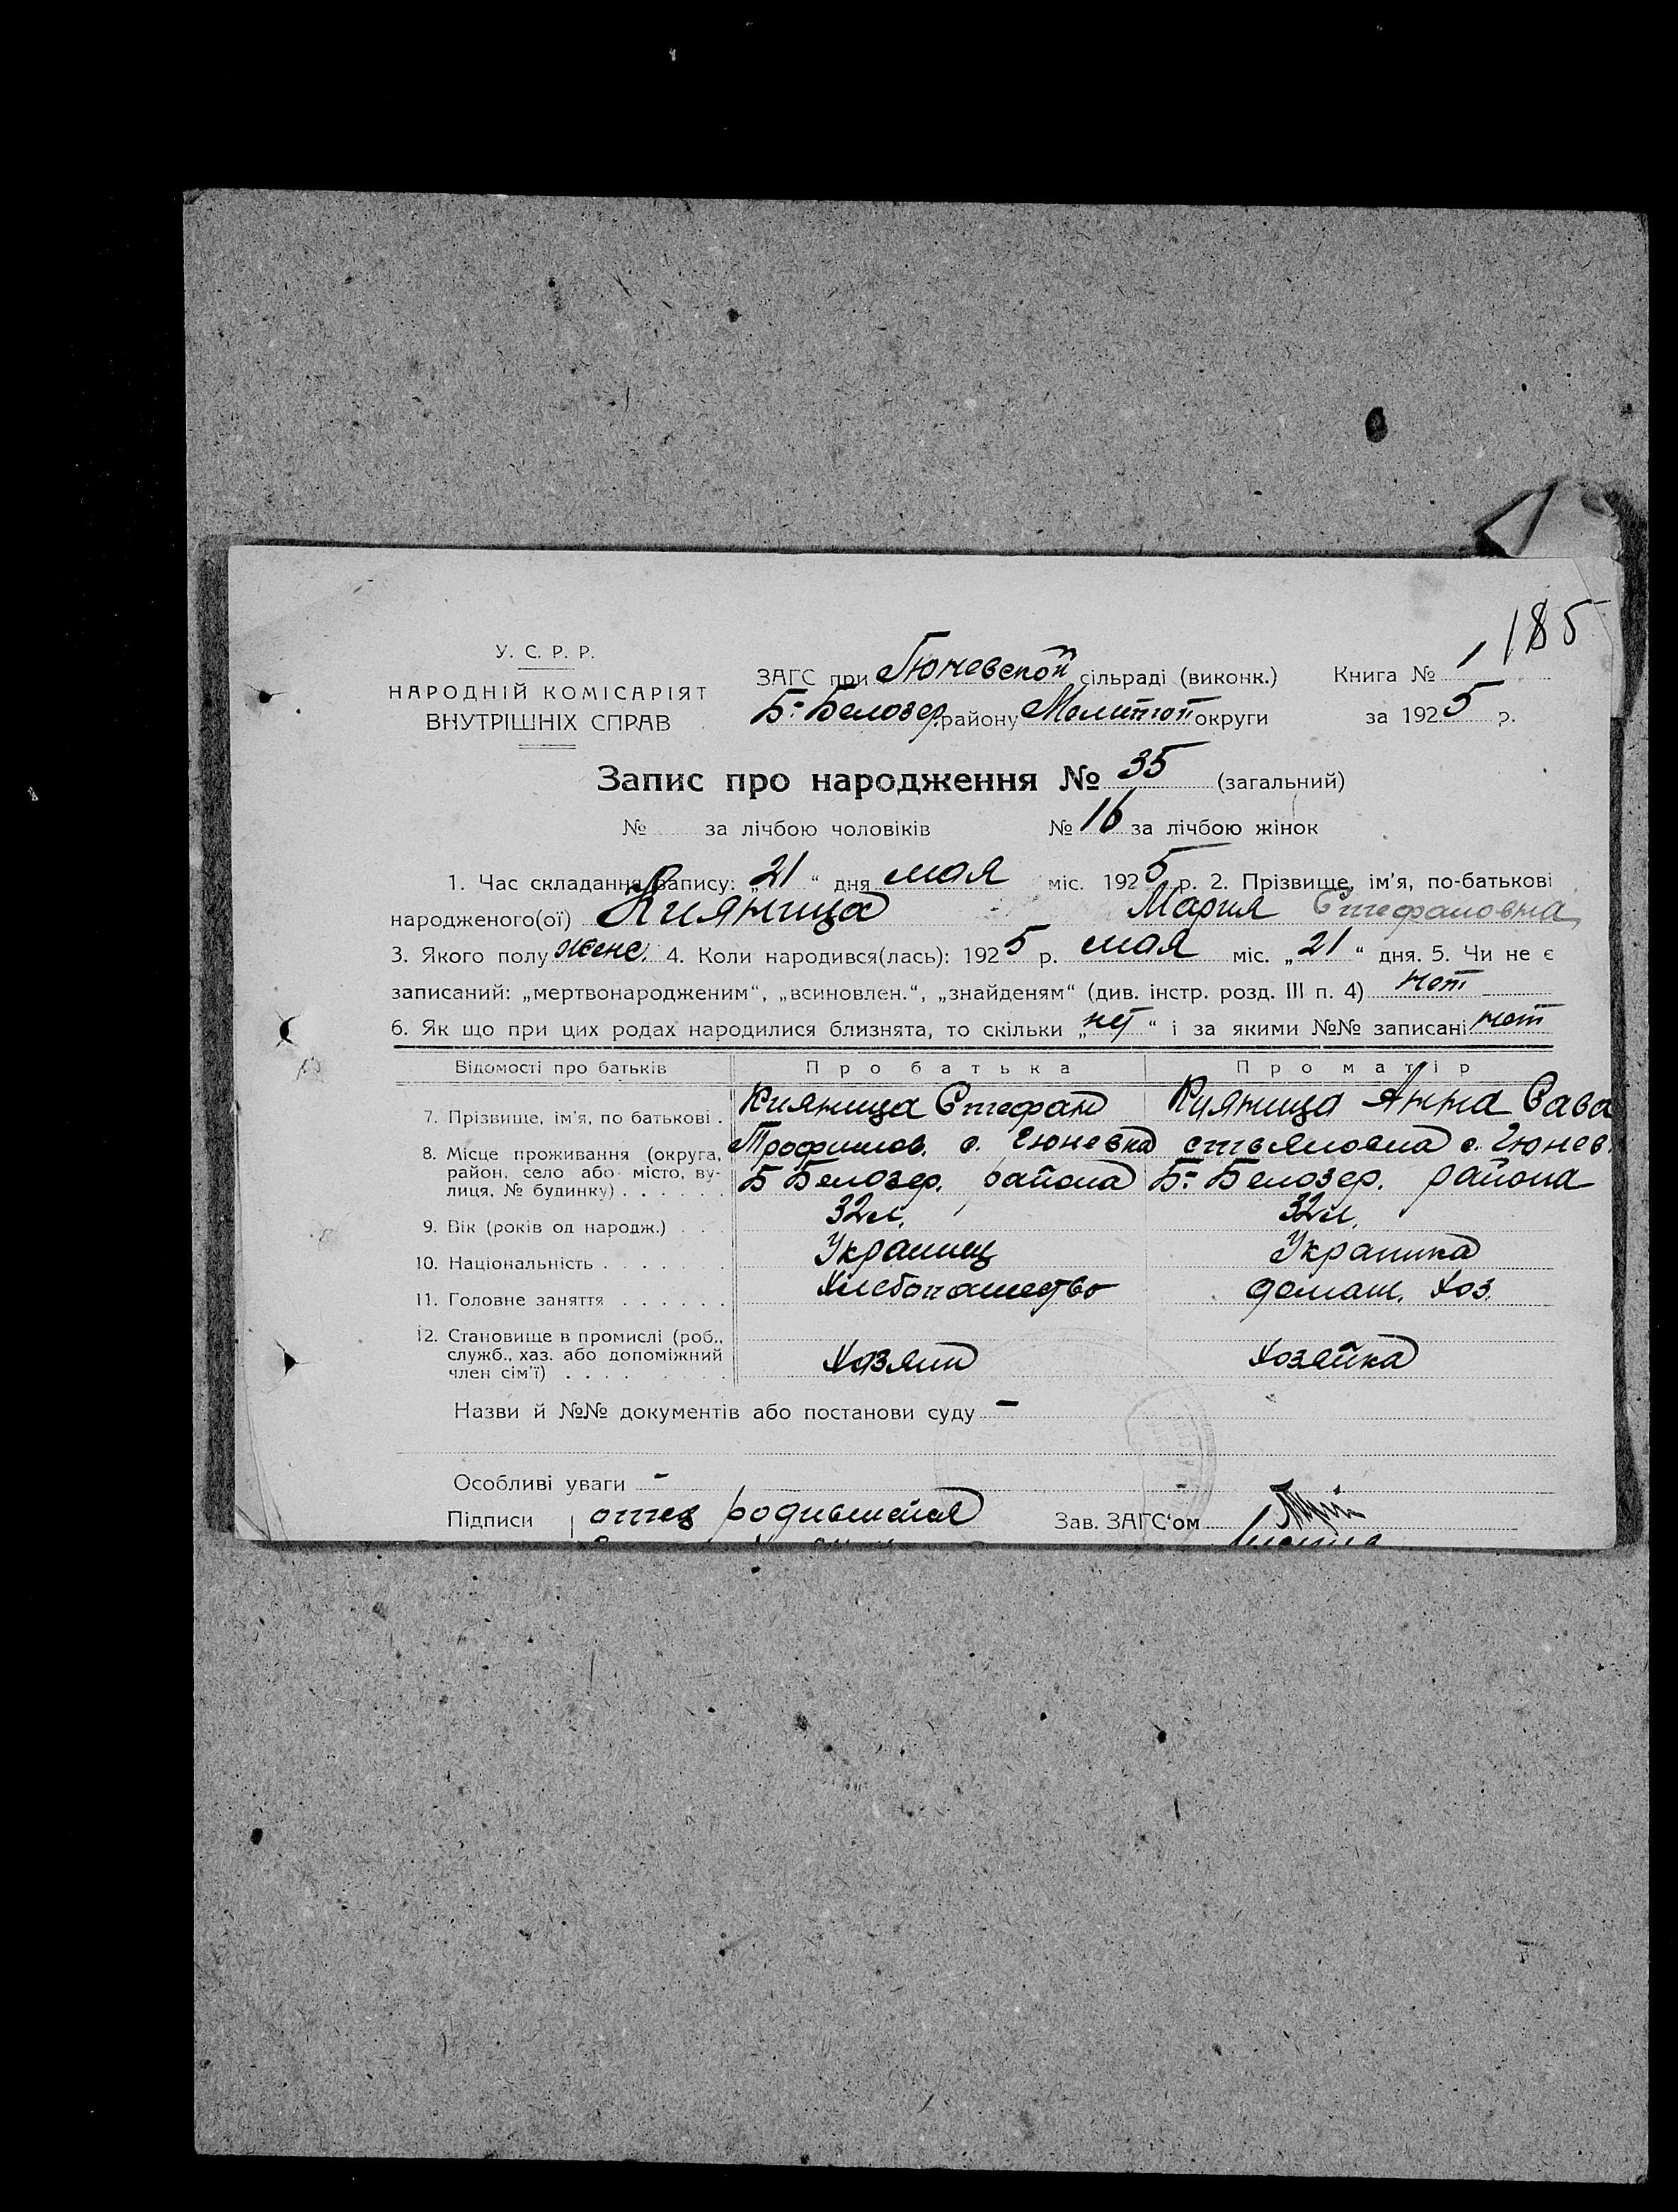 185
У. С. Р. Р.
НАРОДНІЙ КОМІСАРІЯТ
ВНУТРІШНІХ СПРАВ
ЗАГС при Гюневской сільраді (виконк.) Книга № 1
Б-Белозер. району Мелитоп округи за 1925 р.
Запис про народження № 35 (загальний)
№ за лічбою чоловіків № 16 за лічбою жінок
1. Час складання запису: „21“ дня мая міс. 1925 р. 2. Прізвище, ім'я, по-батькові
народженого(ої) Кияница Мария Стефановна
3. Якого полу женс. 4. Коли народився(лась): 1925 р. мая міс. „21“ дня. 5. Чи не є
записаний: „мертвонародженим“, „всиновлен.“, „знайденям“ (див. інстр. розд. III п. 4) нет
6. Як що при цих родах народилися близнята, то скільки „нет“ і за якими №№ записані нет
Відомості про батьків Про батька Про матір
7. Прізвище, ім'я, по батькові . Кияница Стефан Кияница Анна Сава
8. Місце проживання (округа, Трофимов. с. Гюневка стьяновна с. Гюнев.
район, село або місто, ву-
лиця, № будинку) . . . . . . Б Белозер. района Б-Белозер. района
9. Вік (років од народж.) . . 32 л. 32 л.
10. Національність . . . . . . Украинец Украинка
11. Головне заняття . . . . . . Хлебопашество домаш. хоз.
12. Становище в промислі (роб.,
служб., хаз. або допоміжний
член сім'ї) . . . . . . . . Хозяин хозяйка
Назви й №№ документів або постанови суду –
Особливі уваги –
Підписи отец родившейся Зав. ЗАГС'ом